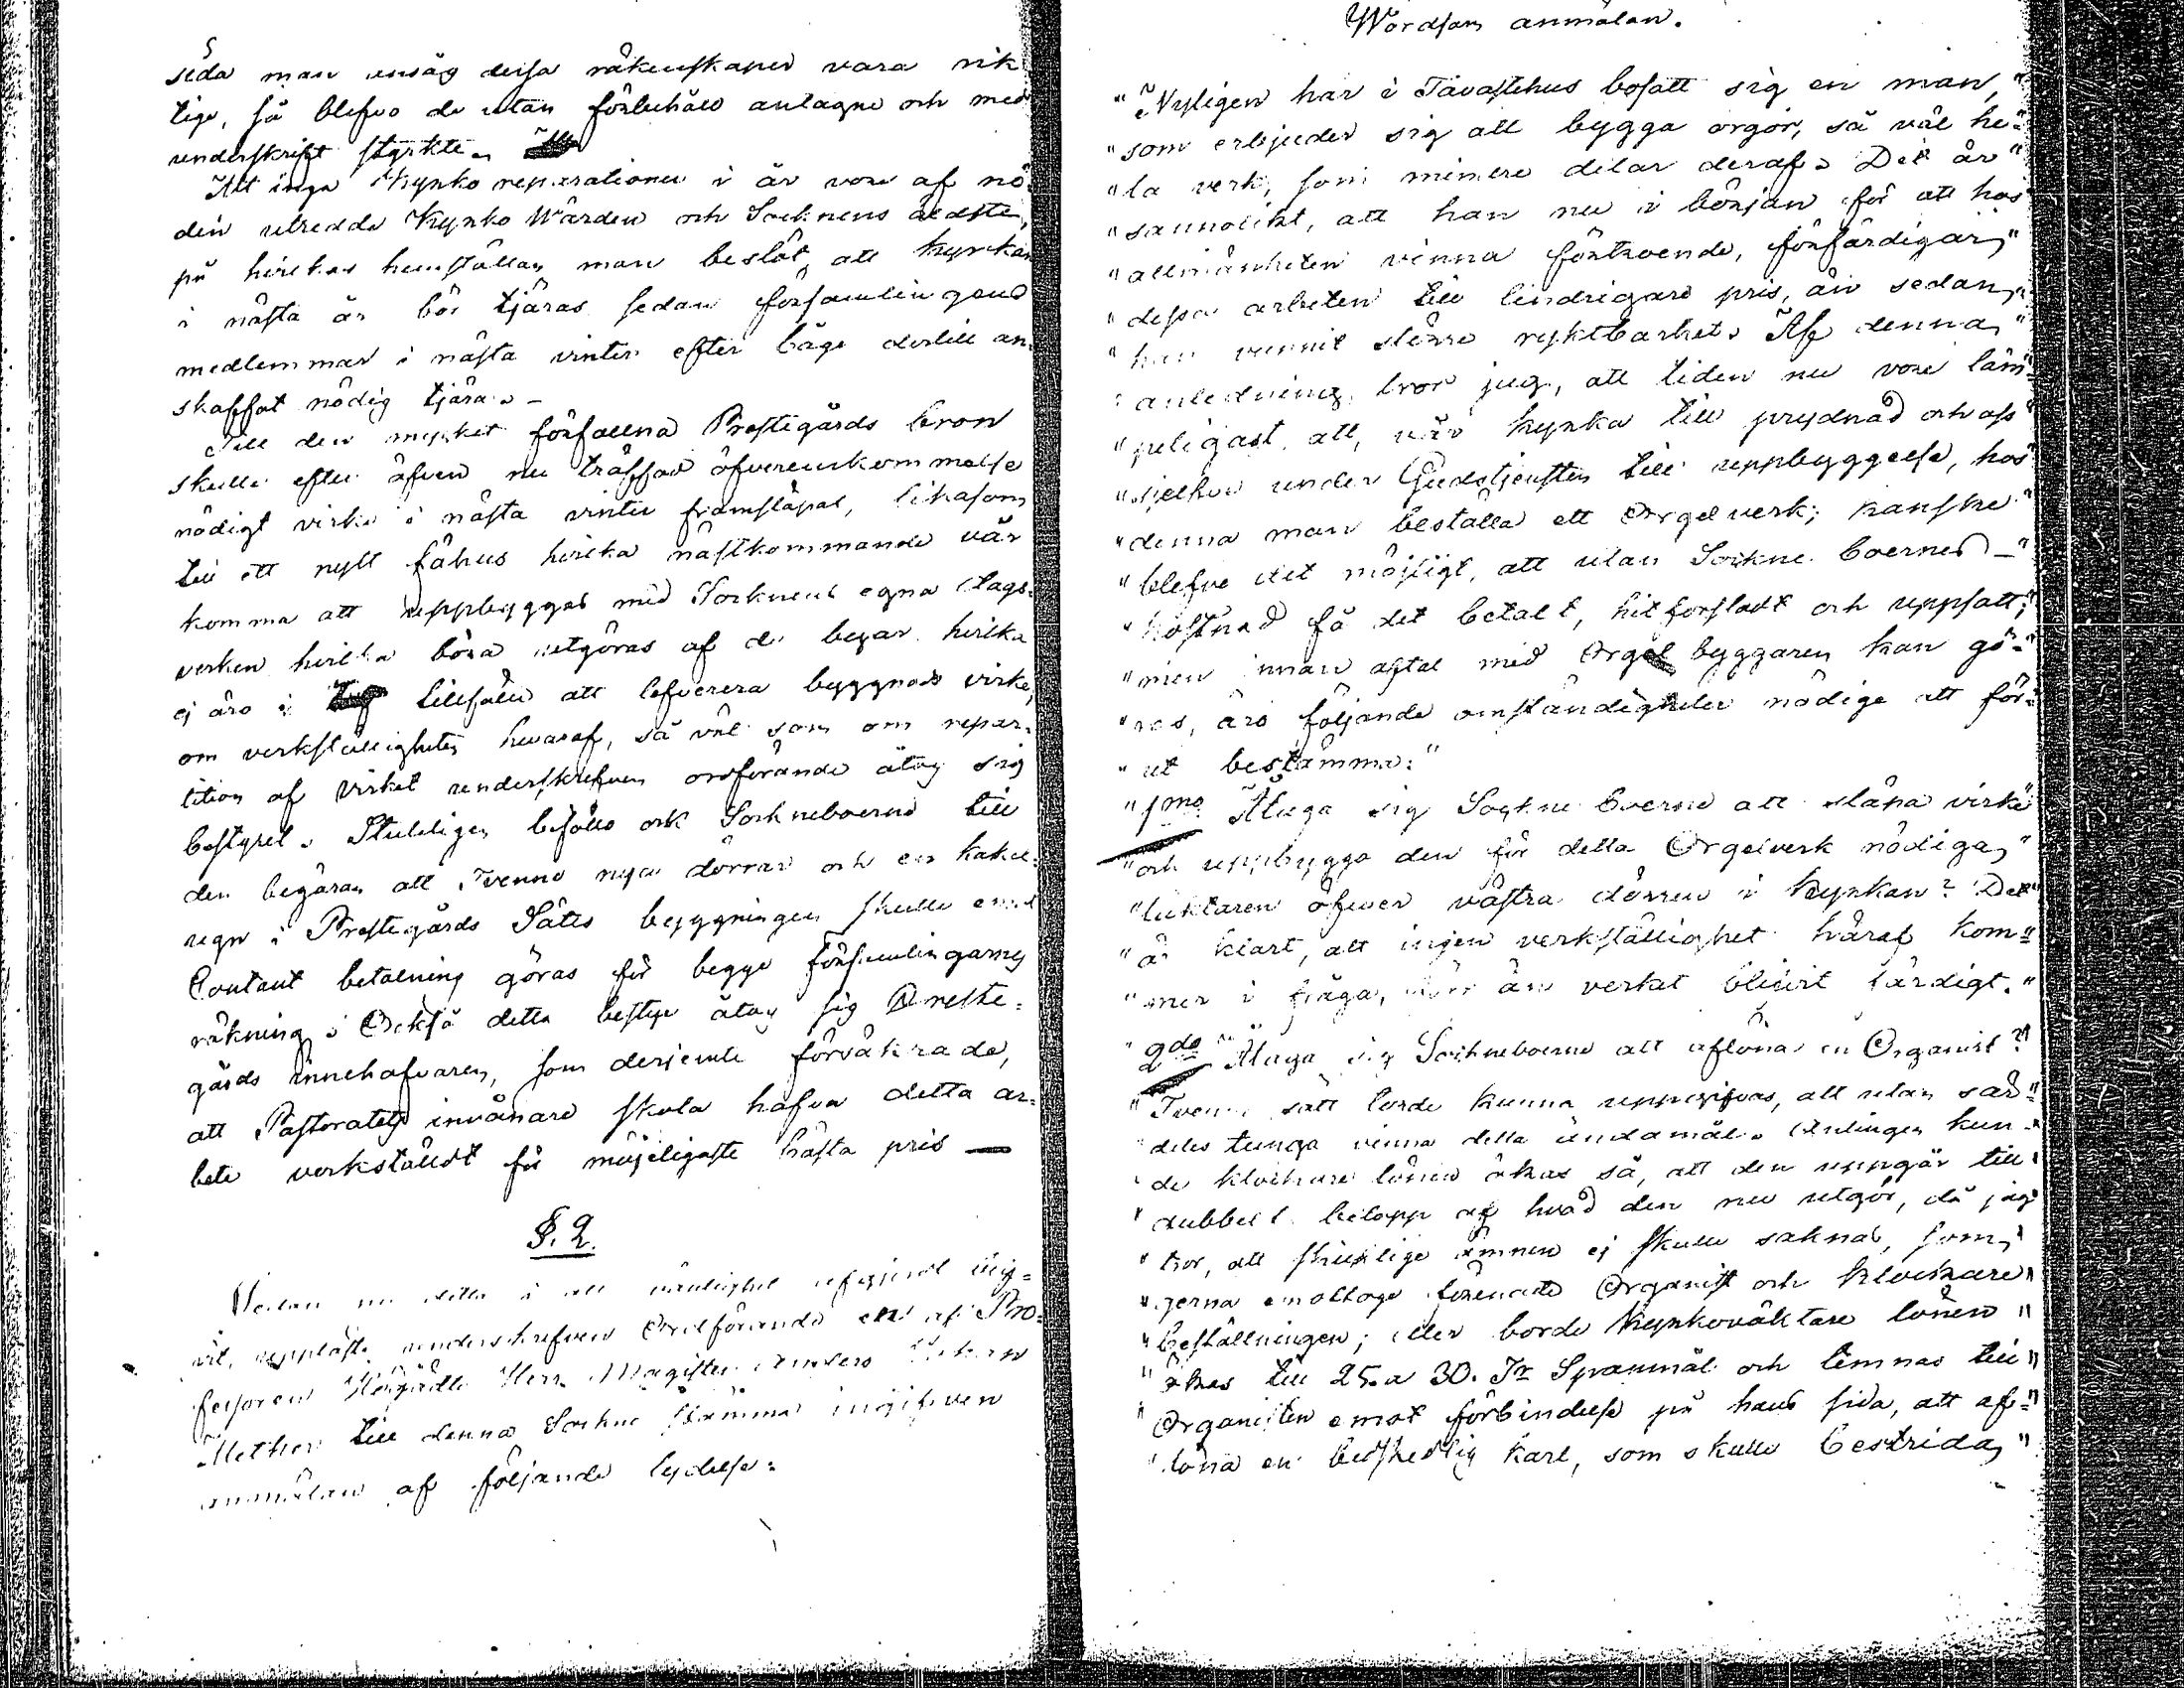 5
seda man ansåg dessa räkenskaper vara rik
tige, så blefvo de utan förbehåll antagne och med
underskrift styrkte.
Att inga Kyrko reparationer i år voro af nö-
den utredde Kyrko Wården och Socknens äldste,
på hvilkas hemställan man beslöt, att kyrkan
i nästa år bör tjäras sedan församlingens
medlemmar i nästa vinter efter båge dertill an-
skaffat nödig tjära. -
Till den mycket förfallna Prestegårds bron
skulle efter äfven nu träffad öfverenskommelse
nödigt virke i nästa vinter framsläpas, likasom
till ett nytt fähus hvilka nästkommande vår
komma att uppbyggas med Socknens egna dags-
verken hvilka böra utgöras af de byar hvilka
ej äro i tillfälle att lefverera byggnads virke,
om verkställigheten hvaraf, så väl som om repar-
tition af virket underskrefven ordförande åtog sig
bestyret. Slutligen biföllo ock Sockneboerne till
den begäran att Tvenne nya dörrar och en kakel-
ugn i Prestegårds Sätes byggningen skulle emot
Contant betalning göras för begge församlingarnes
räkning. Också detta bestyr åtog sig Preste-
gårds innehafvaren, som derjemte försäkrade,
att Pastoratets invånare skola hafva detta ar-
bete verkstäldt för möjeligaste bästa pris —
§. 2.
Sedan nu detta i all vänlighet afgjordt blif-
vit, uppläste underskrefven Ordförande en af Pro-
fessoren Högädle Herr Magister Anders Johan
Mether till denna Sockne stämma ingifven
anmälan af följande lydelse:
Wördsam anmälan.
"Nyligen har i Tavastehus bosatt sig en man,"
"som erbjuder sig att bygga orgor, så väl he-"
"la verk, som mindre delar deraf. Det är"
"sannolikt, att han nu i början för att hos"
"allmänheten vinna förtroende, förfärdigar"
"dessa arbeten till lindrigare pris, än sedan"
"han vunnit större ryktbarhet. Af denna"
"anledning, tror jag, att tiden nu vore läm-"
"peligast att, vår kyrka till prydnad och oss"
"sjelfve under Gudstjensten till uppbyggelse, hos"
"denna man beställa ett Orgelverk; kanske"
"blefve det möjligt, att utan Sockne boernes -"
"kostnad få det betalt, hitforsladt och uppsatt;"
"men innan aftal med Orgel byggaren kan gö-"
"ras, äro följande omständigheter nödige att för-"
"ut bestämma:"
"1mo Åtaga sig Sockne boerne att släpa virke"
"och uppbygga den för detta Orgelverk nödiga"
"läktaren öfver västra dörren i kyrkan? Det"
"är klart, att ingen verkställighet häraf kom-"
"mer i fråga, förr än verket blivit färdigt."
"2do Åtaga sig Sockneboerne att aflöna en Organist?"
"Tvenne sätt torde kunna uppgifvas, att utan sär-"
"deles tunga vinna detta ändamål. Antingen kun-"
"de klockare lönen ökas så, att den uppgår till"
"dubbelt belopp af hvad den nu utgör, då jag"
"tror, att skicklige ämnen ej skulle saknas, som"
"gerna emottoge förenade Organist och klockare"
"beställningen; eller borde Kyrkoväktare lönen"
"ökas till 25. a 30. Tr Spannmål och lemnas till"
"Organisten emot förbindelse på hans sida, att af-"
"löna en beskedlig karl, som skulle bestrida"